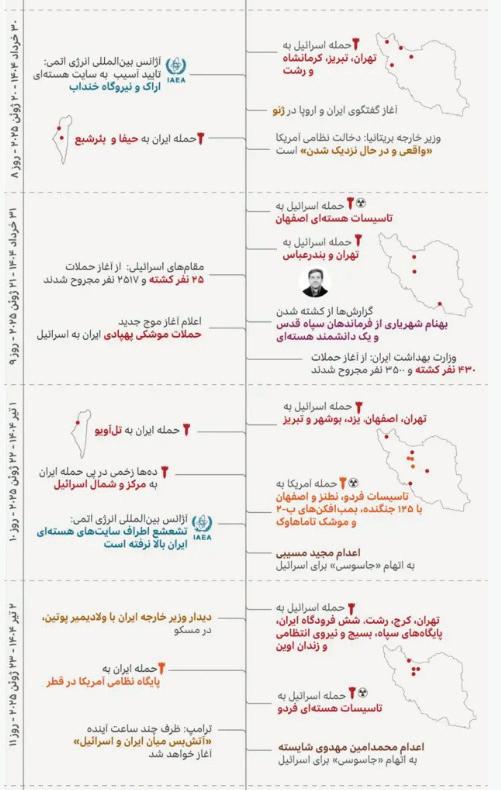 ۳۰ خرداد ۱۴۰۴ - ۲۰ ژوئن ۲۰۲۵ - روز ۸
حمله اسرائیل به
تهران، تبریز، کرمانشاه
و رشت
آغاز گفتگوی ایران و اروپا در ژنو
وزیر خارجه بریتانیا: دخالت نظامی آمریکا
«واقعی و در حال نزدیک شدن» است
آژانس بین‌المللی انرژی اتمی:
تایید آسیب به سایت هسته‌ای
اراک و نیروگاه خنداب
IAEA
حمله ایران به حیفا و بئرشبع
۳۱ خرداد ۱۴۰۴ - ۲۱ ژوئن ۲۰۲۵ - روز ۹
حمله اسرائیل به
تاسیسات هسته‌ای اصفهان
حمله اسرائیل به
تهران و بندرعباس
گزارش‌ها از کشته شدن
بهنام شهریاری از فرماندهان سپاه قدس
و یک دانشمند هسته‌ای
وزارت بهداشت ایران: از آغاز حملات
۴۳۰ نفر کشته و ۳۵۰۰ نفر مجروح شدند
مقام‌های اسرائیلی: از آغاز حملات
۲۵ نفر کشته و ۲۵۱۷ نفر مجروح شدند
اعلام آغاز موج جدید
حملات موشکی پهپادی ایران به اسرائیل
۱ تیر ۱۴۰۴ - ۲۲ ژوئن ۲۰۲۵ - روز ۱۰
حمله اسرائیل به
تهران، اصفهان، یزد، بوشهر و تبریز
حمله آمریکا به
تاسیسات فردو، نطنز و اصفهان
با ۱۲۵ جنگنده، بمب‌افکن‌های ب-۲
و موشک تاماهاوک
اعدام مجید مسیبی
به اتهام «جاسوسی» برای اسرائیل
حمله ایران به تل‌آویو
ده‌ها زخمی در پی حمله ایران
به مرکز و شمال اسرائیل
آژانس بین‌المللی انرژی اتمی:
تشعشع اطراف سایت‌های هسته‌ای
ایران بالا نرفته است
IAEA
۲ تیر ۱۴۰۴ - ۲۳ ژوئن ۲۰۲۵ - روز ۱۱
حمله اسرائیل به
تهران، کرج، رشت، شش فرودگاه ایران،
پایگاه‌های سپاه، بسیج و نیروی انتظامی
و زندان اوین
حمله اسرائیل به
تاسیسات هسته‌ای فردو
اعدام محمدامین مهدوی شایسته
به اتهام «جاسوسی» برای اسرائیل
دیدار وزیر خارجه ایران با ولادیمیر پوتین،
در مسکو
حمله ایران به
پایگاه نظامی آمریکا در قطر
ترامپ: ظرف چند ساعت آینده
«آتش‌بس میان ایران و اسرائیل»
آغاز خواهد شد